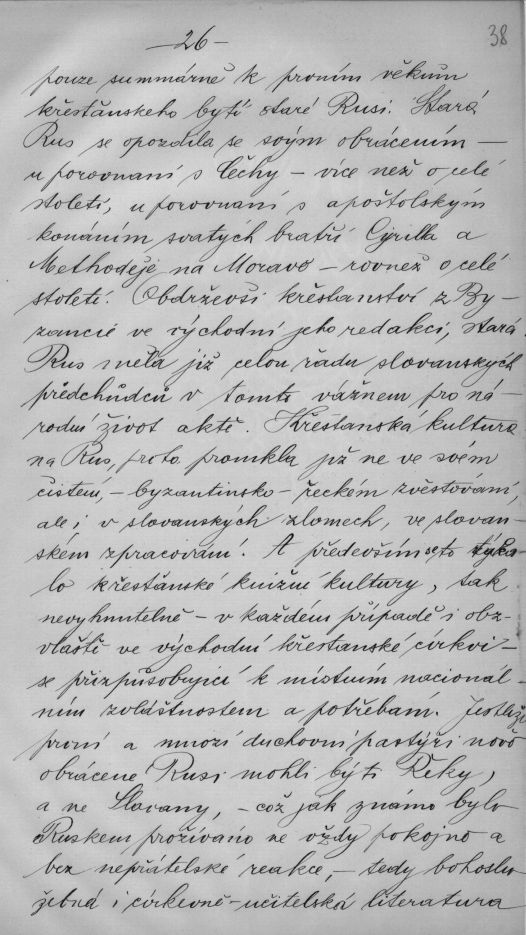 —26—
38
pouze summárně k prvním věkům
křesťánskeho bytí staré Rusi. Stará
Rus se opozdila se svým obrácením —
u porovnaní s Čechy — více než o celé
století, u porovnaní s apoštolským
konáním svatých bratří Cyrilla a
Methoděje na Moravě — rovněž o celé
století. Obdrževši křestanství z By-
zancie ve východní jeho redakci, stará
Rus měla již celou řadu slovanských
předchůdců v tomto vážnem pro ná-
rodní život aktě. Křesťanská kultura
na Rus, proto pronikla již ne ve svém
čistem, — byzantinsko — řeckém zvěstovaní,
ale i v slovanských zlomech, ve slovan-
ském zpracovaní. A především se to týka-
lo křesťánské knižní kultury, tak
nevyhnutelně — v každém případě i obz-
vláště ve východní křestanské církvi —
se přizpůsobující k místním nacionál-
ním zvláštnostem a potřebam. Jestliže
první a mnozí duchovní pastýři nově
obrácené Rusi mohli býti Řeky,
a ne Slavany, — což jak známo bylo
Ruskem prožíváno ne vždy pokojno a
bez nepřátelské reakce, — tedy bohoslu-
žebná i církevně-učitelská literatura